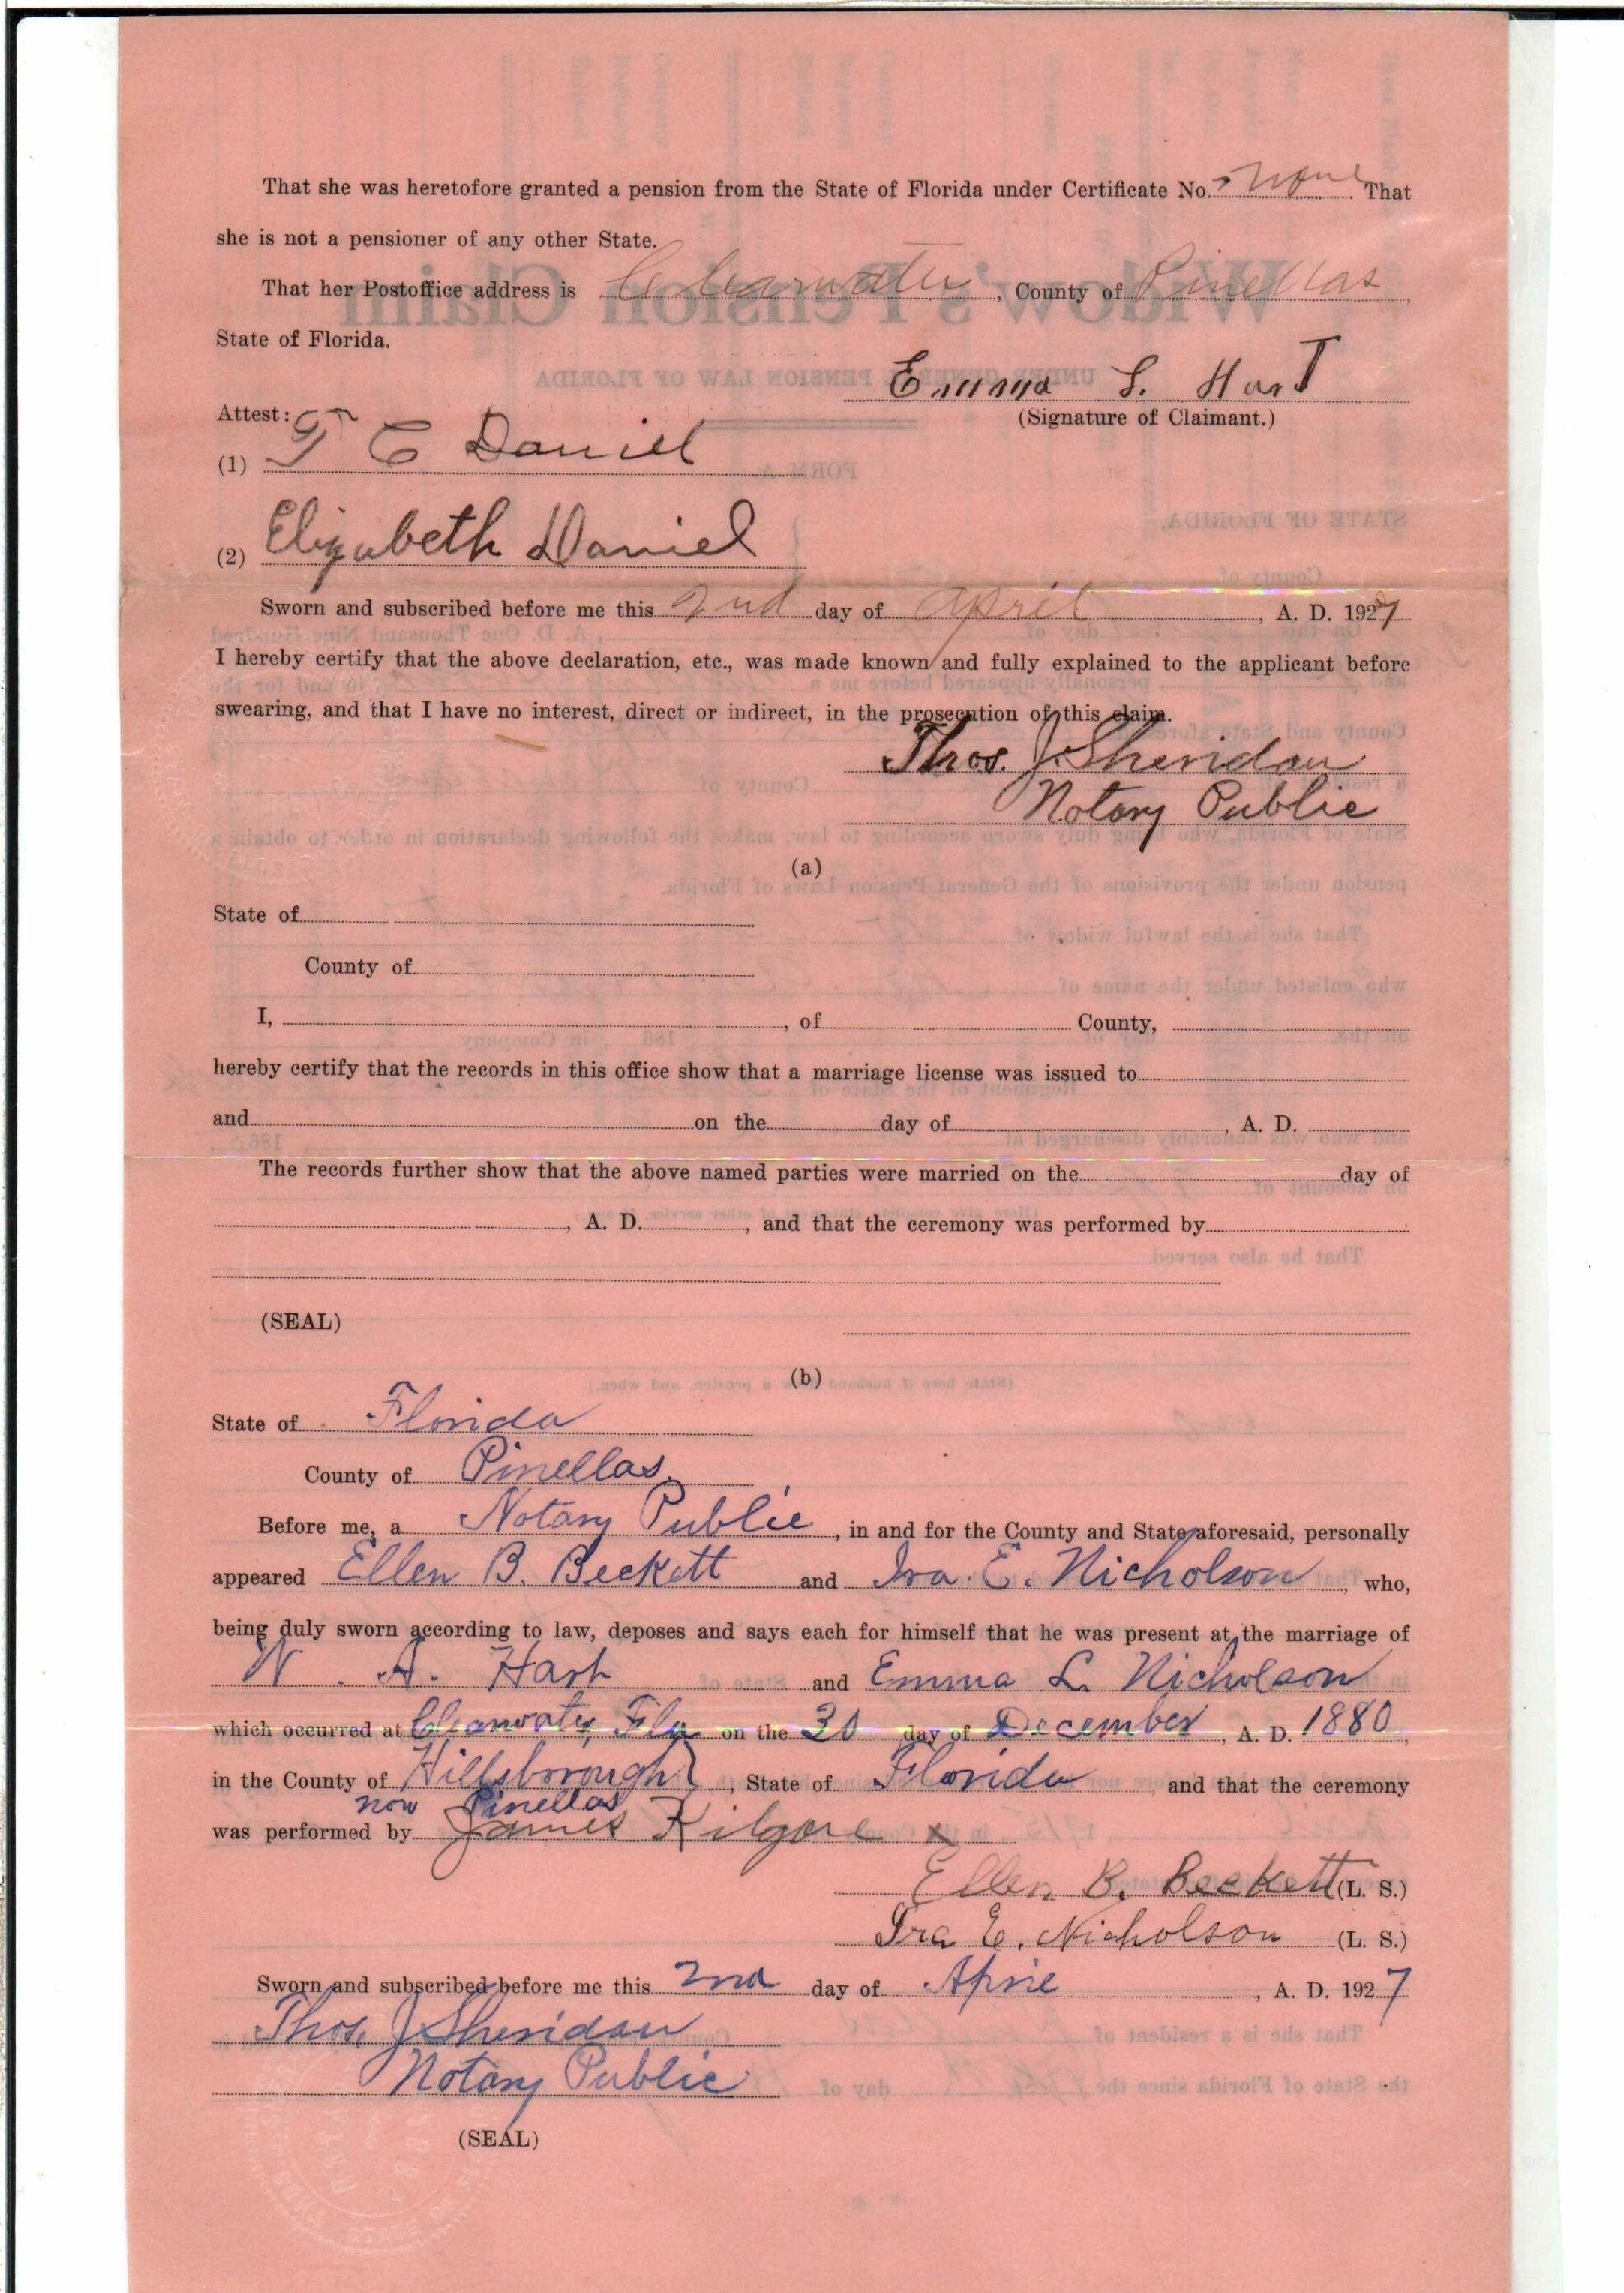 That she was heretofore granted a pension from the State of Florida under Certificate No. none That
she is not a pensioner of any other State.
That her Postoffice address is Clearwater, County of Pinellas,
State of Florida.
Emma L. Hart
Attest:
(Signature of Claimant.)
(1) T C Daniel
(2) Elizabeth Daniel
Sworn and subscribed before me this 2nd day of April, A. D. 1927
I hereby certify that the above declaration, etc., was made known and fully explained to the applicant before
swearing, and that I have no interest, direct or indirect, in the prosecution of this claim.
Thos. J Sheridan
Notary Public
(a)
State of
County of
I, , of County,
hereby certify that the records in this office show that a marriage license was issued to
and on the day of , A. D.
The records further show that the above named parties were married on the day of
, A. D. , and that the ceremony was performed by
(SEAL)
(b)
State of Florida
County of Pinellas
Before me, a Notary Public, in and for the County and State aforesaid, personally
appeared Ellen B. Beckett and Ira E. Nicholson, who,
being duly sworn according to law, deposes and says each for himself that he was present at the marriage of
W. A. Hart and Emma L. Nicholson
which occurred at Clearwater, Fla on the 30 day of December, A. D. 1880,
in the County of Hillsborough, State of Florida, and that the ceremony
now Pinellas
was performed by James Kilgore x
Ellen B. Beckett (L. S.)
Ira E. Nicholson (L. S.)
Sworn and subscribed before me this 2nd day of April, A. D. 1927
Thos. J Sheridan
Notary Public
(SEAL)